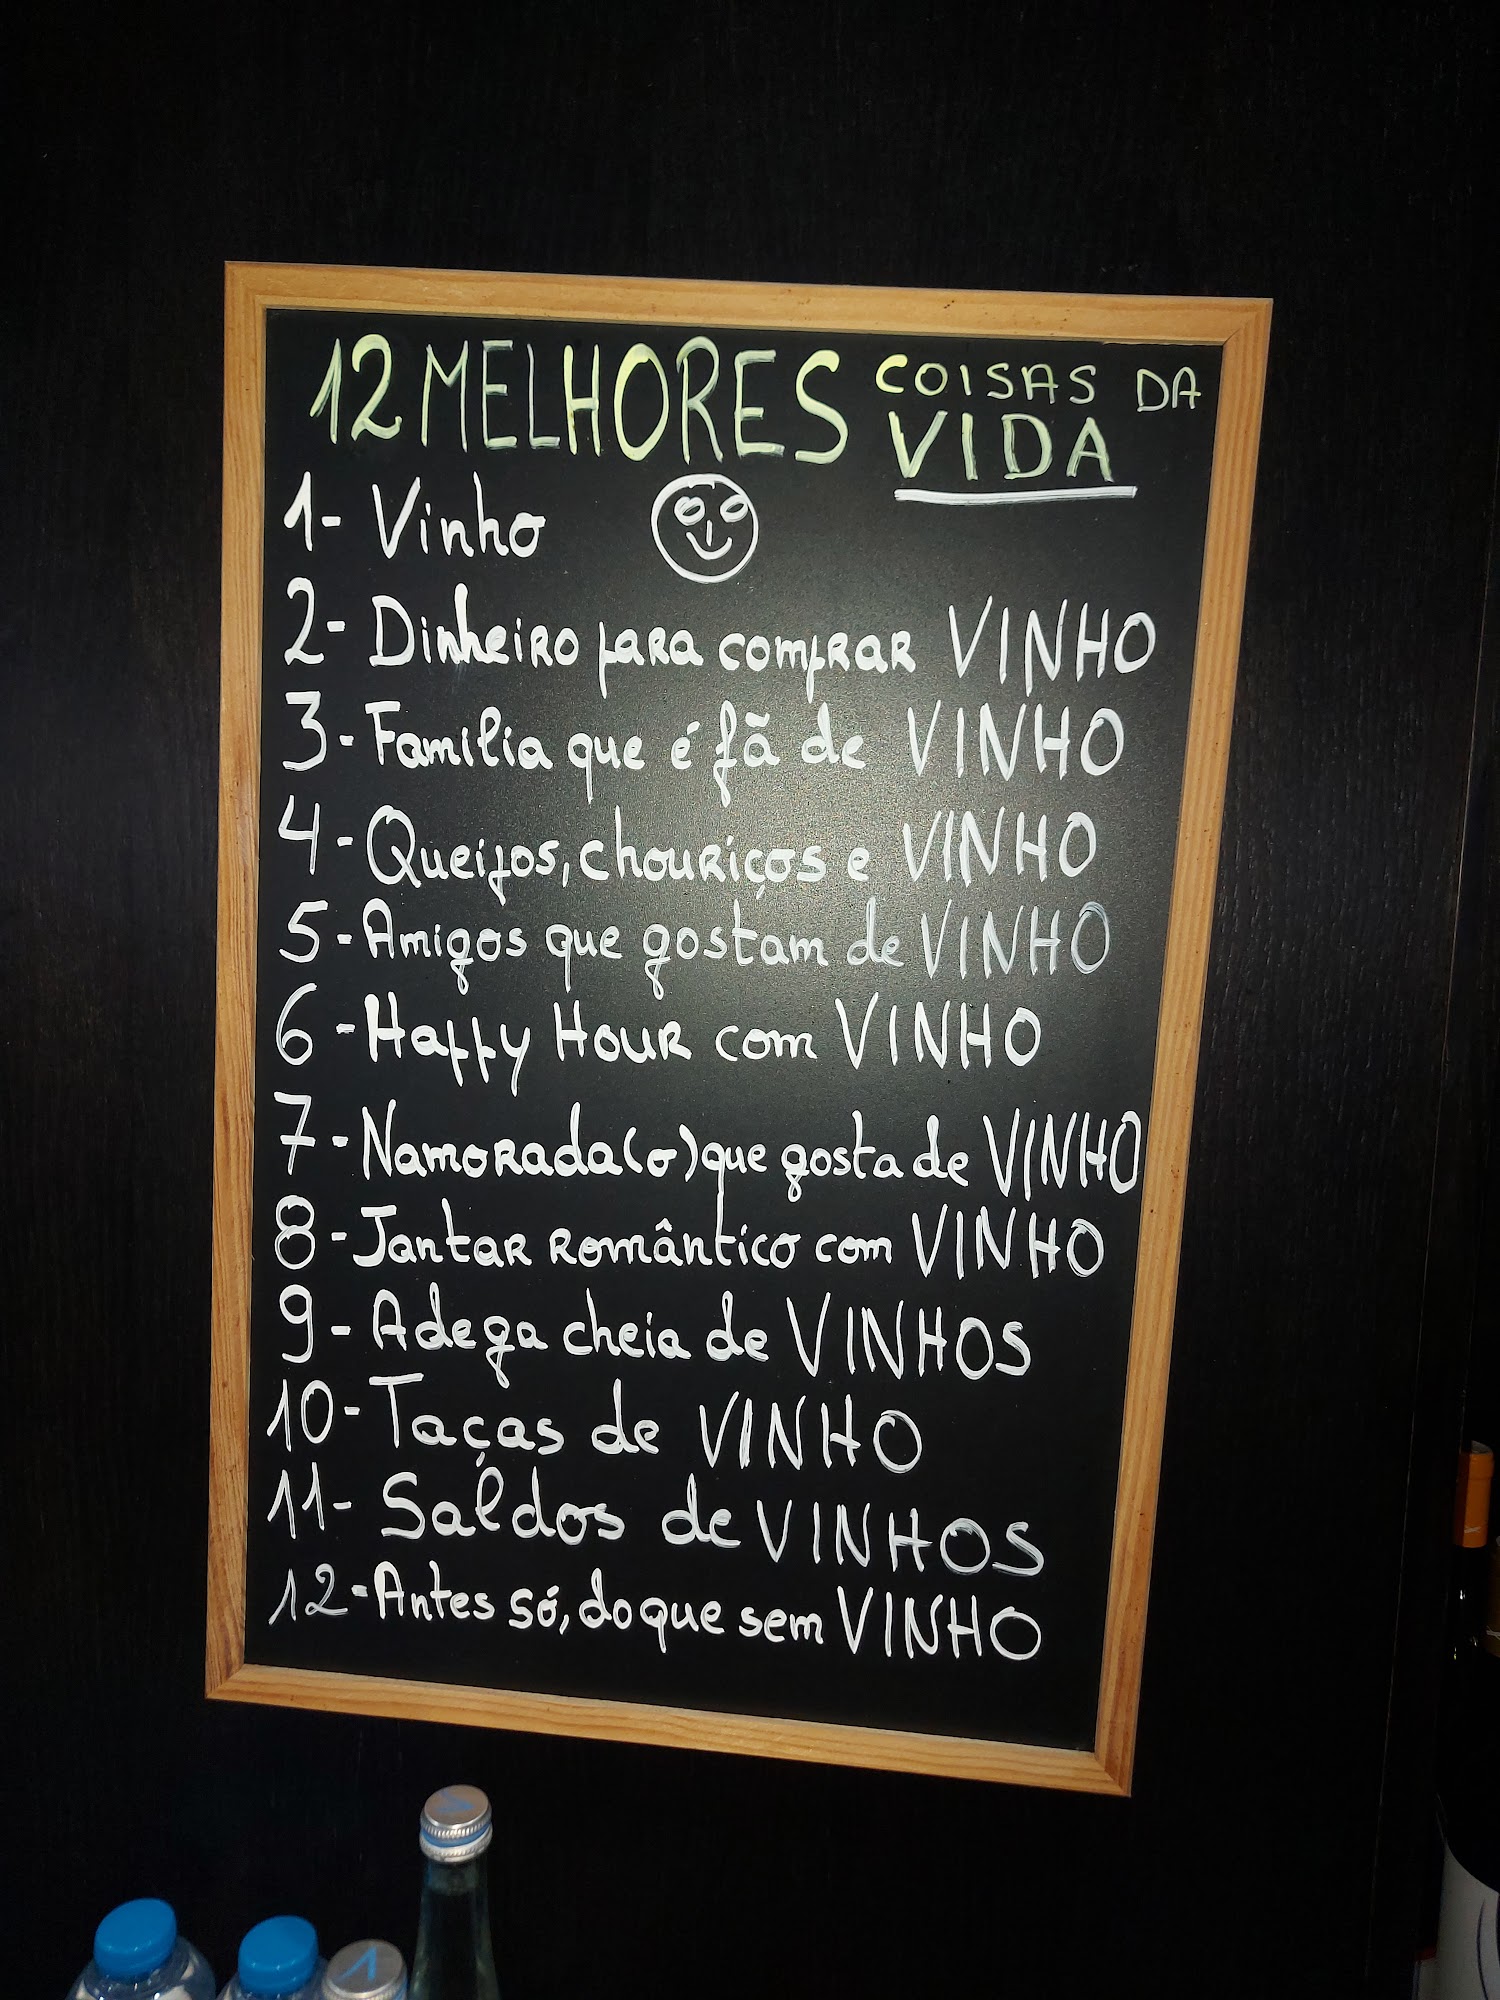 12 MELHORES COISAS DA
VIDA
1- Vinho
2- Dinheiro para comprar VINHO
3- Familia que é fã de VINHO
4- Queijos, chouriços e VINHO
5- Amigos que gostam de VINHO
6- Happy Hour com VINHO
7- Namorada(o) que gosta de VINHO
8- Jantar romântico com VINHO
9- Adega cheia de VINHOS
10- Taças de VINHO
11- Saldos de VINHOS
12- Antes só, do que sem VINHO